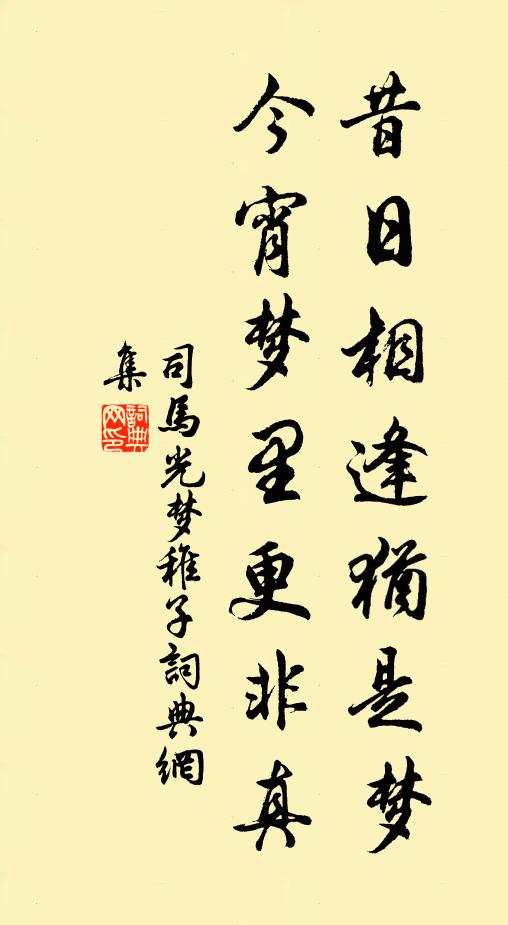 昔日相逢犹是梦
今宵梦里更非真
司馬光梦稚子詞典網
集
詞典網印